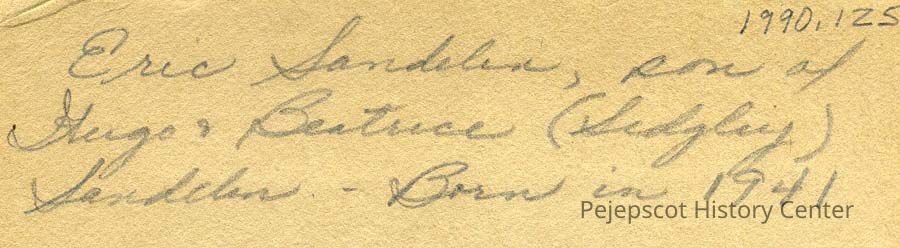 1990.125
Eric Sandelin, son of
Hugo & Beatrice (Sedgley)
Sandelin. - Born in 1941
Pejepscot History Center